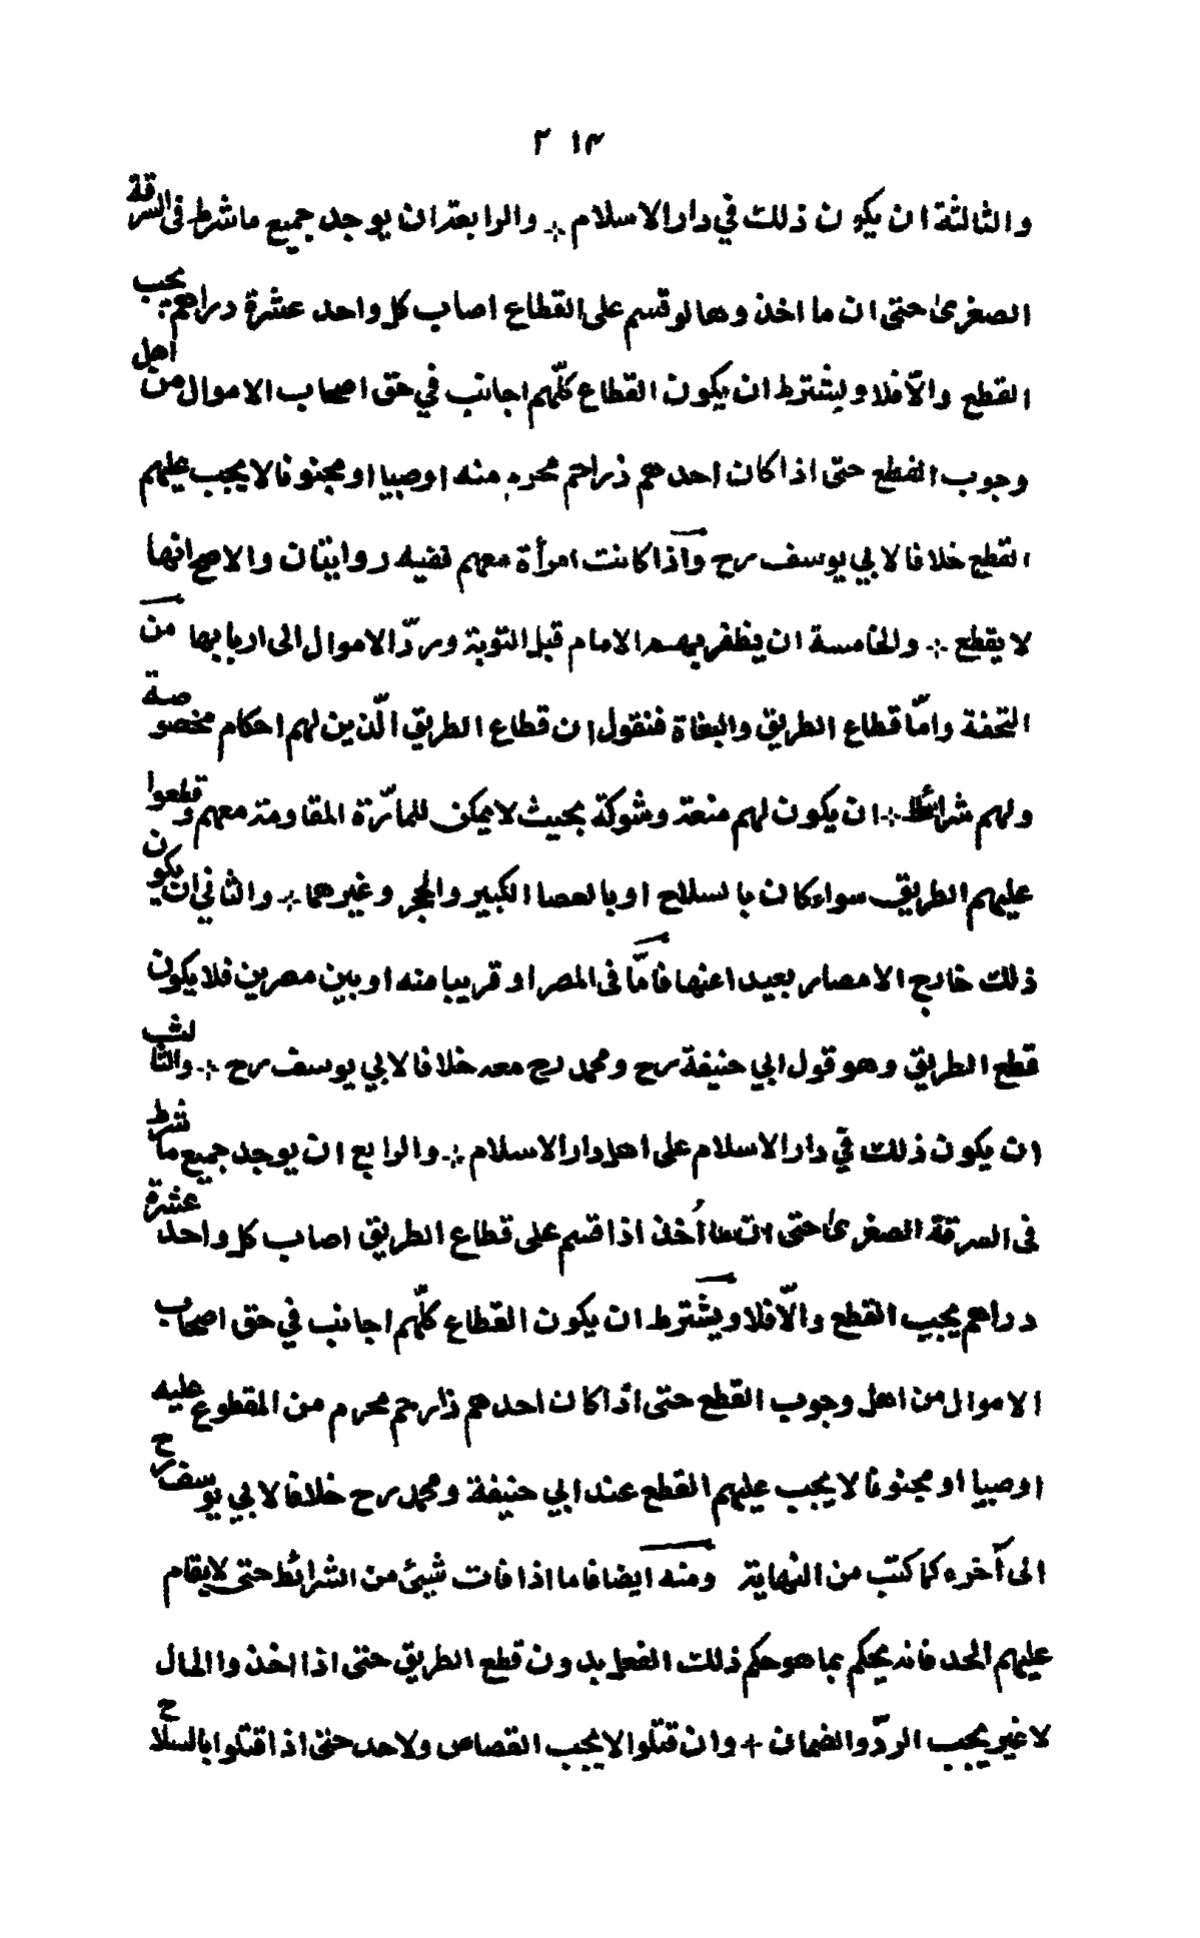 ٢١٣
والثالثة ان يكون ذلك في دار الاسلام ÷ والرابعة ان يوجد جميع ما شرط فى السرقة
الصغرىٰ حتى ان ما اخذوها لو قسم على القطاع اصاب كل واحد عشرة دراهم يجب
القطع والّا فلا ويشترط ان يكون القطاع كلّهم اجانب في حق اصحاب الاموال من اهل
وجوب القطع حتى اذا كان احدهم ذا رحم محرم منه او صبيا او مجنونا لا يجب عليهم
القطع خلافا لابي يوسف رح واذا كانت امرأة معهم ففيه روايتان والاصح انها
لا يقطع ÷ والخامسة ان يظفر بهم الامام قبل التوبة وردّ الاموال الى اربابها من
التحفة وامّا قطاع الطريق والبغاة فنقول ان قطاع الطريق الّذين لهم احكام مخصوصة
ولهم شرائط ÷ ان يكون لهم منعة وشوكة بحيث لا يمكن للمارّة المقاومة معهم وقطعوا
عليهم الطريق سواء كان بالسلاح او بالعصا الكبير والحجر وغيرهما ÷ والثاني ان يكون
ذلك خارج الامصار بعيدا عنها فامّا فى المصر او قريبا منه او بين مصرين فلا يكون
قطع الطريق وهو قول ابي حنيفة رح ومحمد رح معه خلافا لابي يوسف رح ÷ والثالث
ان يكون ذلك في دار الاسلام على اهل دار الاسلام ÷ والرابع ان يوجد جميع ما شرط
فى السرقة الصغرىٰ حتى ان ما أُخذ اذا قسم على قطاع الطريق اصاب كل واحد عشرة
دراهم يجب القطع والّا فلا ويشترط ان يكون القطاع كلّهم اجانب في حق اصحاب
الاموال من اهل وجوب القطع حتى اذا كان احدهم ذا رحم محرم من المقطوع عليه
او صبيا او مجنونا لا يجب عليهم القطع عند ابي حنيفة ومحمد رح خلافا لابي يوسف رح
الى آخره كما كتب من النهاية ومنه ايضا فاما اذا فات شيئ من الشرائط حتى لا يقام
عليهم الحد فانه يحكم بما هو حكم ذلك الفعل بدون قطع الطريق حتى اذا اخذوا المال
لا غير يجب الردّ والضمان + وان قتلوا لا يجب القصاص ولا حد حتى اذا قتلوا بالسلاح